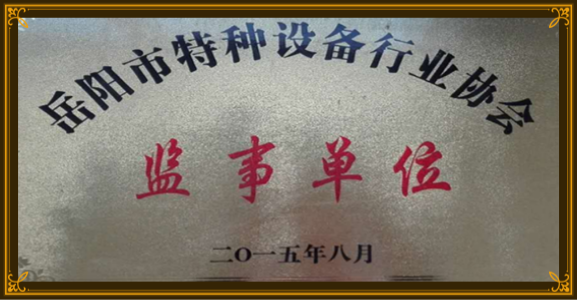 岳阳市特种设备行业协会
监事单位
二O一五年八月